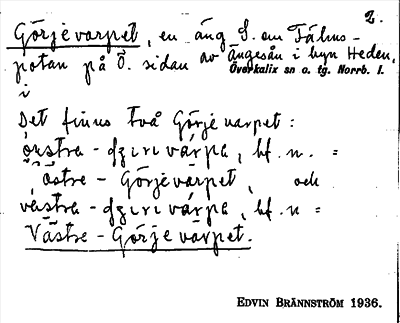 2.
Görjevarpet, en äng S. om Fälms-
potan på Ö. sidan av Ängesån i byn Heden,
Överkalix sn o. tg. Norrb. l.
i
Det finns två Görjevarpet:
östra - varpa, bf. n. =
Östre - Görjevarpet, och
västra - varpa, bf. n =
Västre - Görjevarpet.
EDVIN BRÄNNSTRÖM 1936.